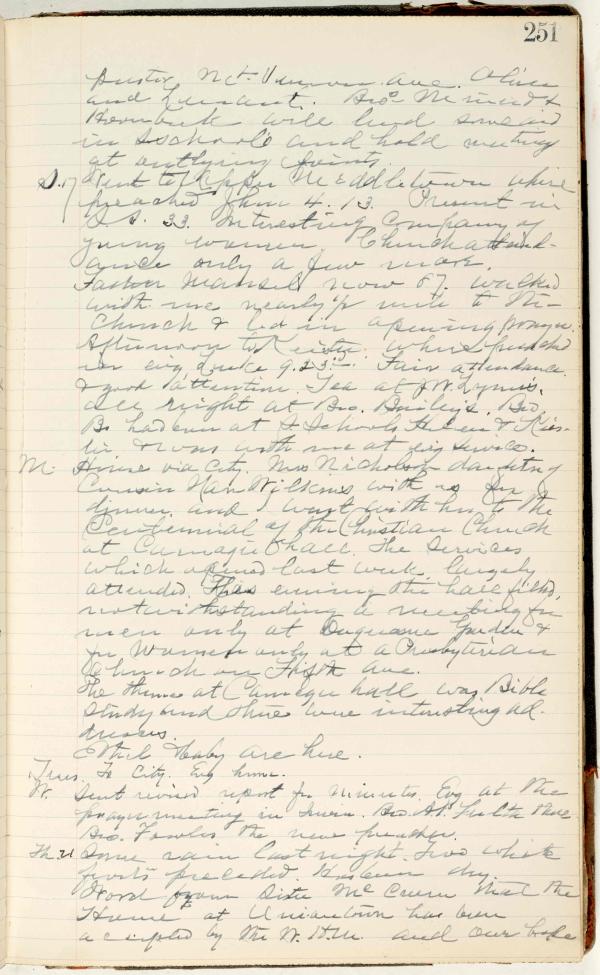 251
pastor, Mt. Vernon Ave. Olive
and Bro's
Hornbeck will lend some aid
in S schools and hold meeting
at outlying points.
S. 17 Went to Upper Middletown where
preached John 4. 13. Present in
S. S. 33. Interesting company of
young women. Church attend-
ance only a few more.
Father Mansel now 87. walked
with me nearly ½ mile to the
Church & led in opening prayer.
Afternoon to where preached
in evg Luke 9. 23. Fair attendance
& good attention. Tea at J W Lynn's.
all night at Bro. Bailey's. Bro.
B. had been at S Schools &
& was with me at evg service.
M. Home via City. Mrs Nicholson daughter of
Cousin Nan Wilkins with us for
dinner and I went with her to the
Centennial of the Christian Church
at Carnegie Hall. The services
which opened last week largely
attended. This evening the hall filled,
notwithstanding a meeting for
men only at Duquesne Garden &
for women only at a Presbyterian
Church on Fifth Ave.
The theme at Carnegie hall was Bible
study and there were interesting ad-
dresses.
Ethel & baby are here.
Tues. To City. Evg home.
W. Sent revised report for minutes. Evg at the
prayer meeting in Bro. there
Bro. Fowles the new preacher.
Th. 21 Some rain last night. Two white
frosts preceded. Has been dry.
Word from Sister McCruem that the
"Home" at Uniontown has been
accepted by the W. H. M. and our